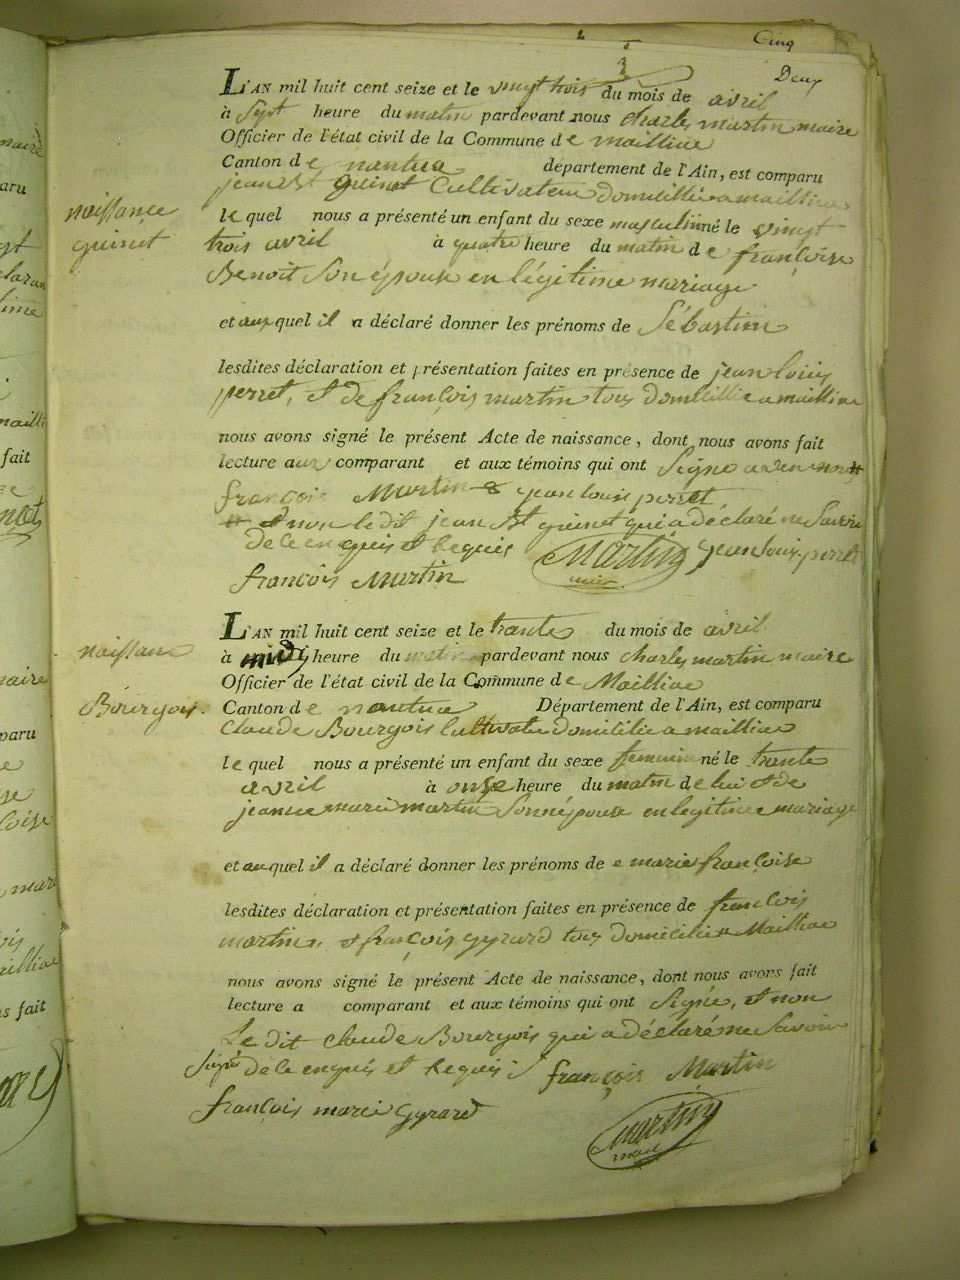 Cinq
Deux
L'AN mil huit cent seize et le vingt trois du mois de avril
à Sept heure du matin pardevant nous charles martin maire
Officier de l'état civil de la Commune de mailliac
Canton de nantua département de l'Ain, est comparu
jean Bt guinet Cultivateur domcillie a mailliac
naissance
guinet
lequel nous a présenté un enfant du sexe masculin né le vingt
trois avril à quatre heure du matin de françoise
Benoit Son épouse en légitime mariage
et auxquel il a déclaré donner les prénoms de Sébastien
lesdites déclaration et présentation faites en présence de jean louis
perret, et de françois martin tous domicillie a mailliac
nous avons signé le présent Acte de naissance, dont nous avons fait
lecture aux comparant et aux témoins qui ont Signe avec nous
françois Martin & jean louis perret
et non le dit jean Bt guinet qui a déclaré ne Savoir
de ce enquis et Requis Martin jean louis perret
maire
françois Martin
L'AN mil huit cent seize et le trante du mois de avril
naissance
à midy heure du matin pardevant nous charles martin maire
Officier de l'état civil de la Commune de Mailliac
Bourgois.
Canton de nantua Département de l'Ain, est comparu
Claude Bourgois Cultivateur domicilie a mailliac
lequel nous a présenté un enfant du sexe feminin né le trante
avril à onse heure du matin de lui et de
jeanne marie martin Son épouse en legitime mariage
et auquel il a déclaré donner les prénoms de e marie françoise
lesdites déclaration et présentation faites en présence de françois
martin, et françois gyrard tous domicilie a Mailliac
nous avons signé le présent Acte de naissance, dont nous avons fait
lecture a comparant et aux témoins qui ont Signée, et non
Le dit claude Bourgois qui a déclaré ne Savoir
Signé de ce enquis et Requis françois Martin
françois marie Gyrard
martin
maire